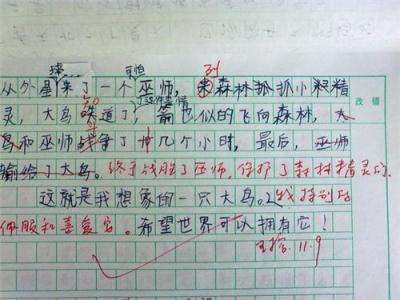 球 可怕 到
从外星来了一个巫师，来森林抓抓小精
改错
这件事情
灵，大鸟知道了，箭也似的飞向森林，大
鸟和巫师战争了十几个小时，最后，巫师
输给了大鸟。终于战胜了巫师，保护了森林精灵们。
这就是我想象的一只大鸟。我特别的
佩服和喜爱它。希望世界可以拥有它！
11.9